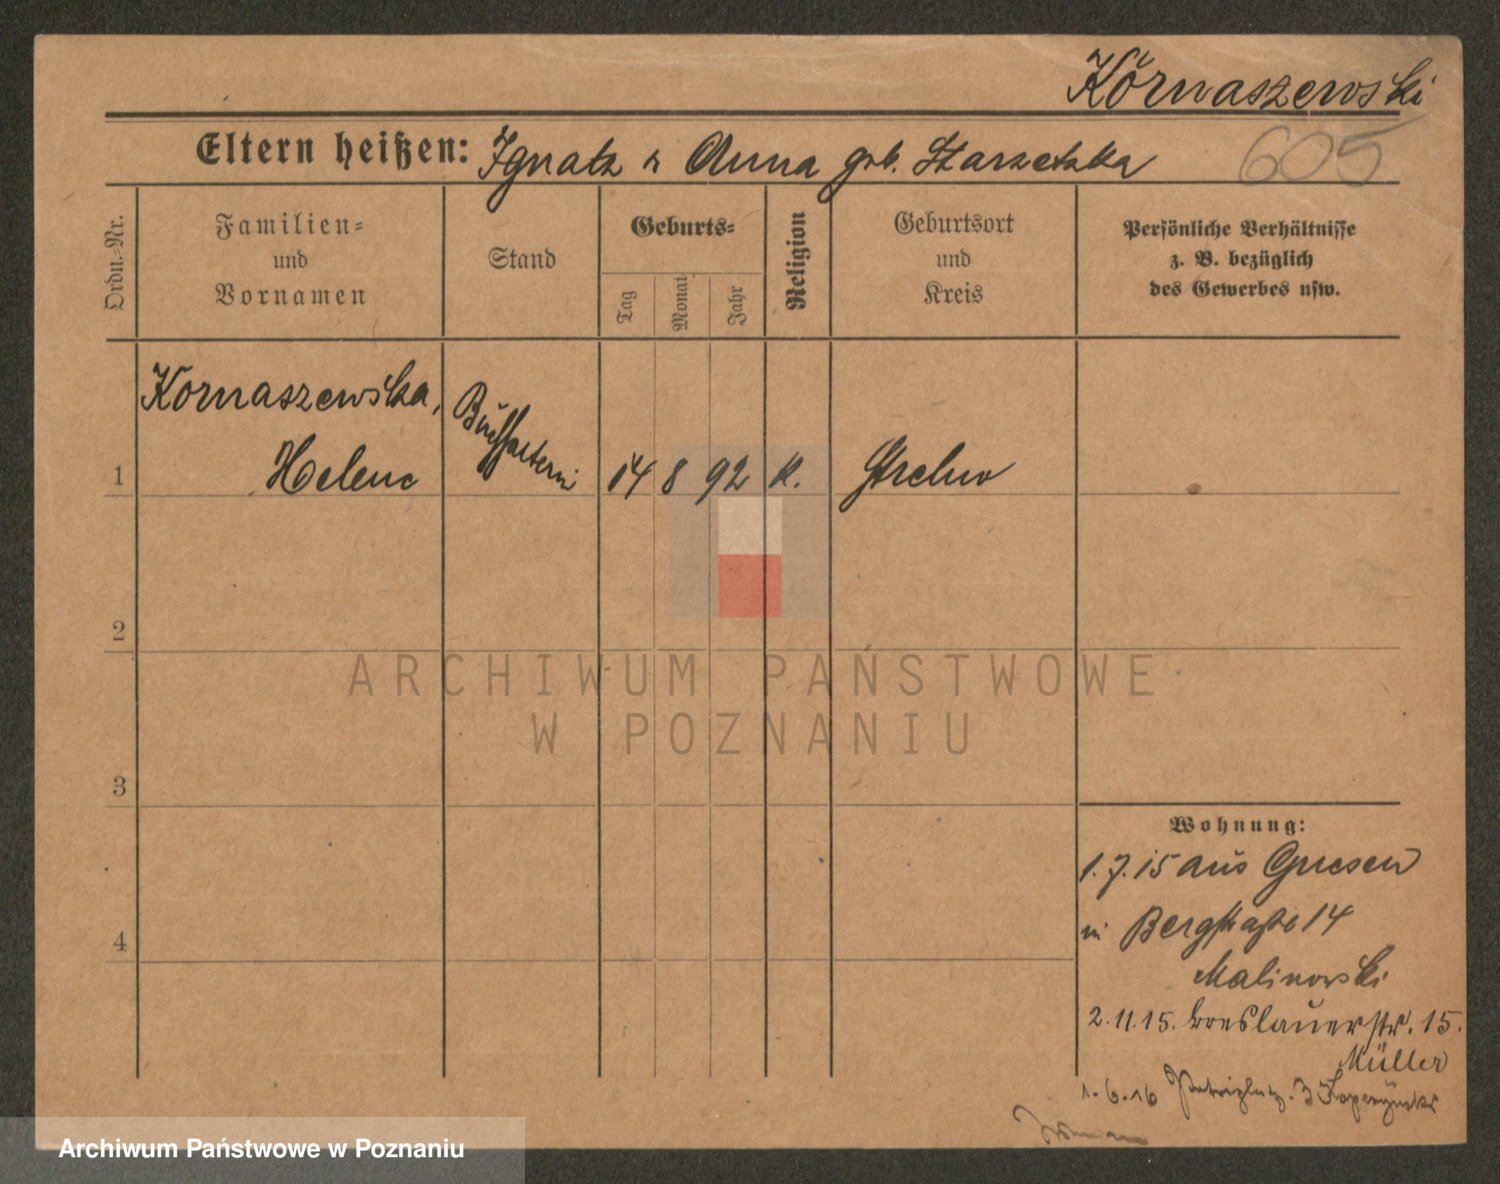 Kornaszewski
605
Eltern heißen: Ignatz u Anna geb. Starzetzka
Ordn.-Nr.
Familien-
und
Vornamen
Stand
Geburts-
Tag
Monat
Jahr
Religion
Geburtsort
und
Kreis
Persönliche Verhältnisse
z. B. bezüglich
des Gewerbes usw.
1
Kornaszewska,
Helene
Buchhalterin
14 8 92 k.
Strelno
2
3
4
Wohnung:
1.7.15 aus Gnesen
in Bergstraße 14
Malinowski
2.11.15. Breslauerstr. 15.
Müller
1.6.16
3
ARCHIWUM PAŃSTWOWE
W POZNANIU
Archiwum Państwowe w Poznaniu